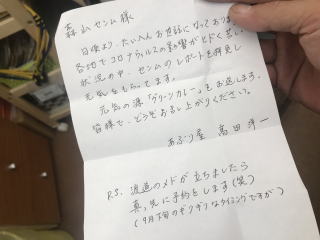 森山センム様
日頃より、たいへんお世話になっております。
各地でコロナウィルスの影響がとびく苦しい
状況の中、センムのレポートを拝見し
元気をもらってます。
元気の源「グリーンカレー」をお送りします。
皆様で、どうぞお召し上がりください。
あぶり屋 高田洋一
P.S. 渡道のメドが立ちましたら
真っ先に予約をします(笑)
(9月下旬のギリギリなタイミングですが)